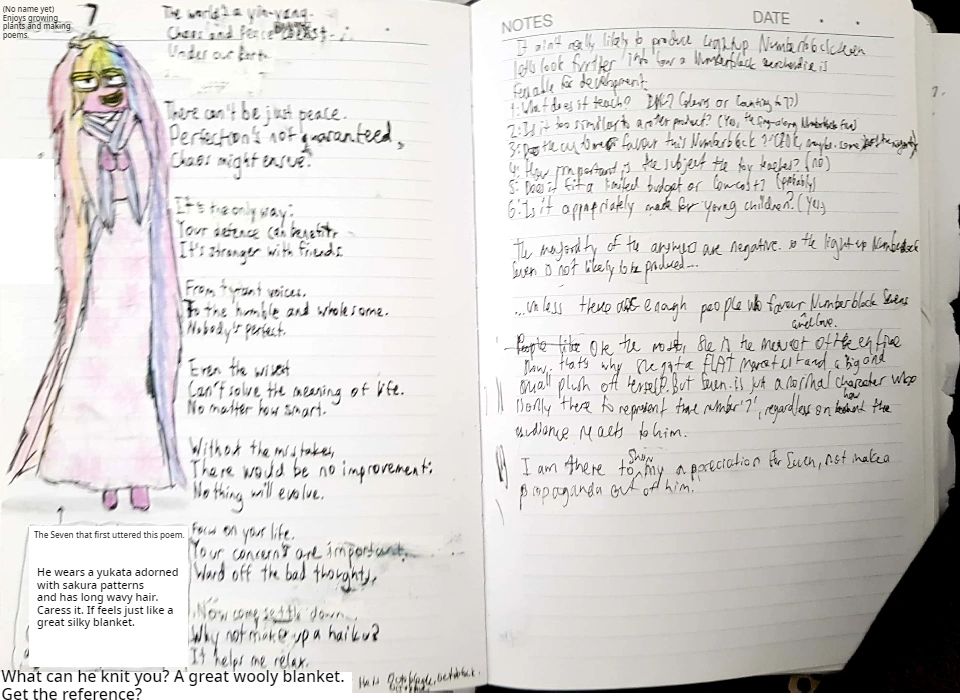 (No name yet)
Enjoys growing
plants and making
poems.
7
The world's a yin-yang.
Chaos and Peace coexist
Under our Earth.
There can't be just peace.
Perfection's not guaranteed,
Chaos might ensue?
It's the only way:
Your defence can benefit,
It's stronger with friends.
From tyrant voices.
To the humble and wholesome.
Nobody's perfect.
Even the wisest
Can't solve the meaning of life.
No matter how smart.
Without the mistakes,
There would be no improvement;
Nothing will evolve.
Focus on your life.
Your concern's are important,
Ward off the bad thoughts,
Now come settle down
Why not make up a haiku?
It helps me relax.
The Seven that first uttered this poem.
He wears a yukata adorned
with sakura patterns
and has long wavy hair.
Caress it. If feels just like a
great silky blanket.
What can he knit you? A great wooly blanket.
Get the reference?
NOTES DATE
It ain't really likely to produce Light up Numberblock Seven
let's look further into how a Numberblock merchandise is
feasible for development.
1. What does it teach? (Colours or Counting to 7?)
2. Is it too similar to another product? (Yes, the Sing-along Numberblocks Five)
3. Does the customers favour this Numberblock? maybe some, just not the majority
4. How important is the subject the toy teaches? (no)
5. Does it fit a limited budget or low cost? (probably)
6. Is it appropriately made for young children? (Yes)
The majority of the answers are negative. so the light up Numberblock
Seven is not likely to be produced...
...unless there are enough people who favour Numberblock Sevens
and love.
People like One the most, She is the mascot of the entire
show, that's why she got a FLAT mascot suit and a big and
small plush off herself. But Seven is just a normal character who
is only there to represent the number '7', regardless on how the
audience reacts to him.
I am there to show my appreciation for Seven, not make a
propaganda out of him.